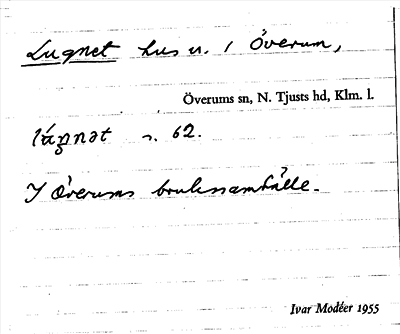 Lugnet hus n. 1 Överum,
Överums sn, N. Tjusts hd, Klm. l.
s. 62.
I Överums brukssamhälle.
Ivar Modéer 1955